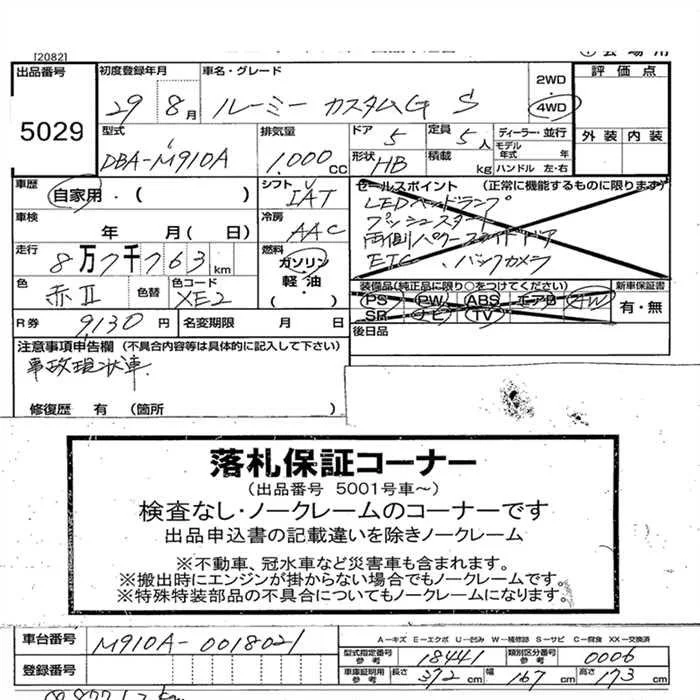 [2082]
出品番号 初度登録年月 車名・グレード 2WD 評価点
5029 29 8月 ルーミー カスタムG S 4WD 外装 内装
型式 排気量 ドア 定員 ディーラー・並行
DBA-M910A 1.000cc 5 5人 モデル年式 年
形状 HB 積載 kg ハンドル 左・右
車歴 自家用・( ) シフト IAT セールスポイント (正常に機能するものに限ります)
LEDヘッドランプ
車検 年 月(日) 冷房 AAC プッシュスタート
両側パワースライドドア
走行 8万7千763km 燃料 ガソリン 軽油・( ) ETC、バックカメラ
色 赤II 色替 色コード XE2 装備品(純正品に限り○をつけてください) 新車保証書
PS PW ABS エアB AW 有・無
SR ナビ TV
R券 9,130円 名変期限 月 日 後日品
注意事項申告欄 (不具合内容等は具体的に記入して下さい)
事故現状車
修復歴 有 (箇所 )
落札保証コーナー
(出品番号 5001号車~)
検査なし・ノークレームのコーナーです
出品申込書の記載違いを除きノークレーム
※不動車、冠水車など災害車も含まれます。
※搬出時にエンジンが掛からない場合でもノークレームです。
※特殊特装部品の不具合についてもノークレームになります。
車台番号 M910A-0018021 A-キズ E-エクボ U-凹み W-補修跡 S-サビ C-腐食 XX-交換済
型式指定番号 参考 18441 類別区分番号 参考 0006
登録番号 車庫証明用 参考 長さ 372cm 幅 167cm 高さ 173cm